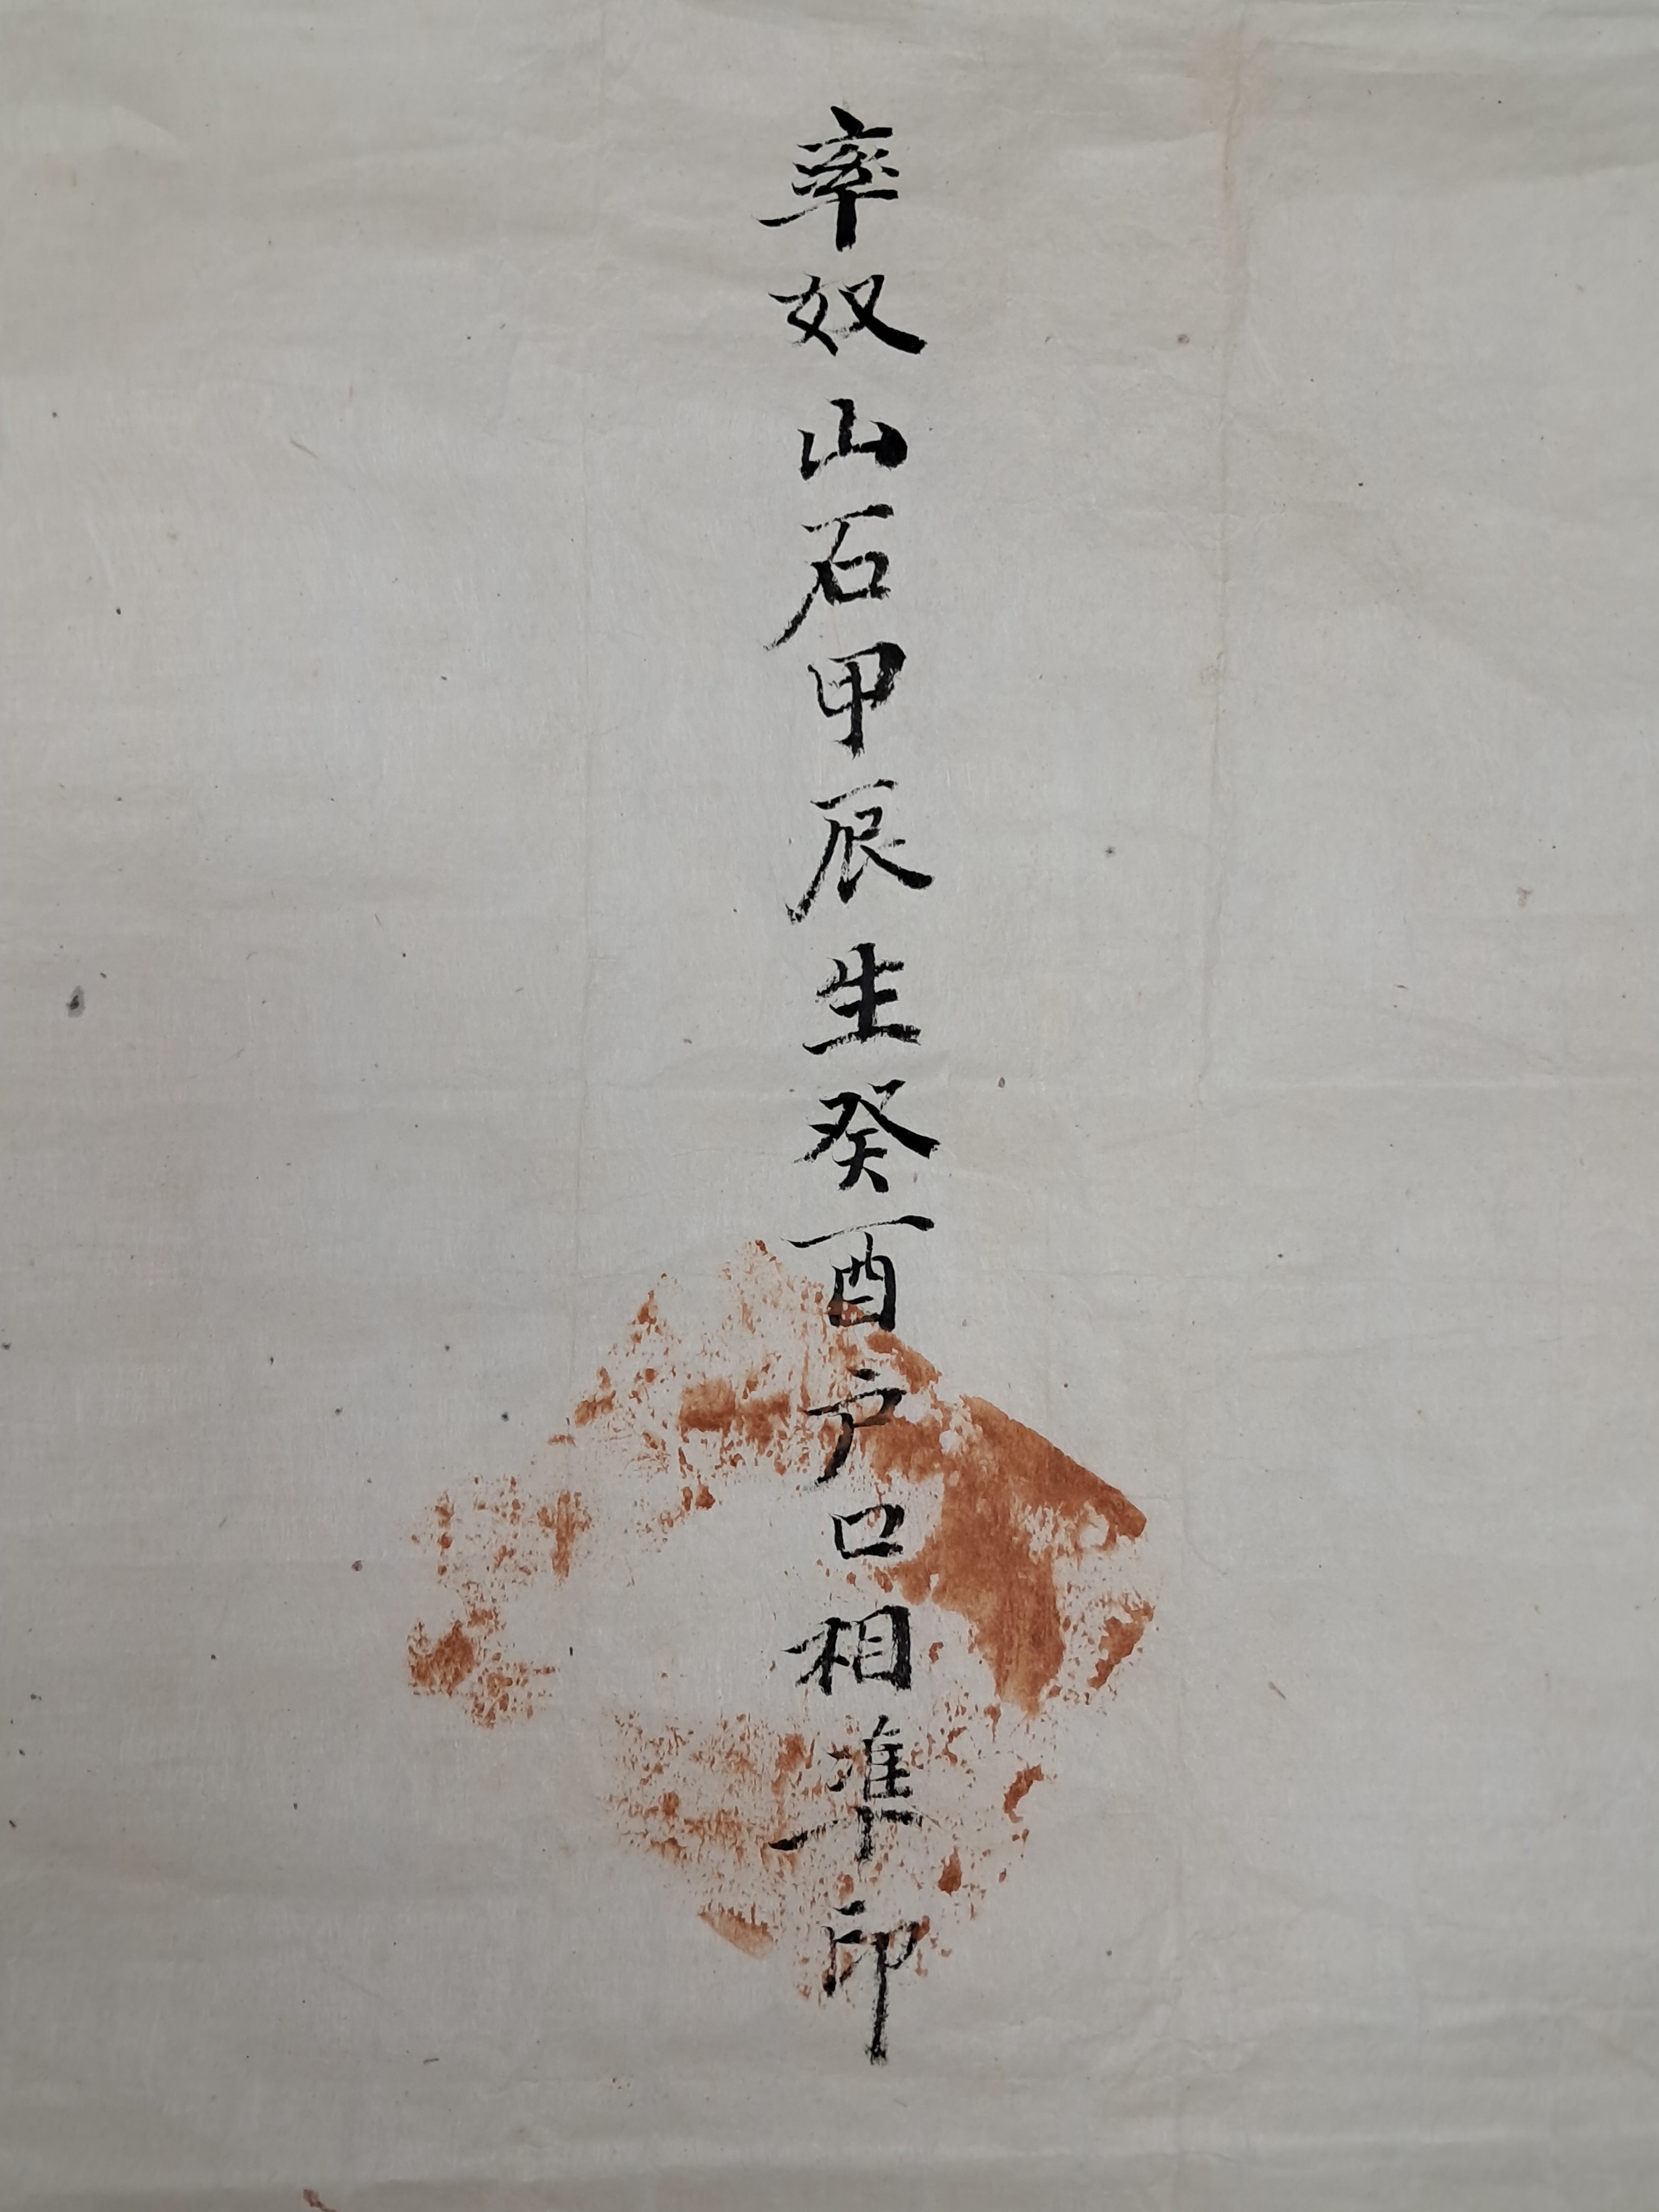 率奴山石甲辰生癸酉户口相準印